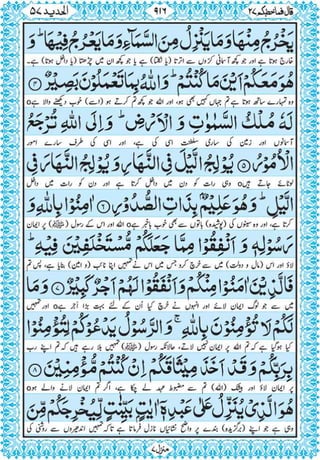 قال فما خطبکم ۲۷ ۹۱۶ الحدید ۵۷
يَخْرُجُ مِنْهَا وَمَا يَنْزِلُ مِنَ السَّمَآءِ وَمَا يَعْرُجُ فِيْهَا ؕ وَ
خارج ہوتا ہے اور جو کچھ آسمانی کروں سے اترتا (یا نکلتا) ہے یا جو کچھ ان میں چڑھتا (یا داخل ہوتا) ہے۔ وہ
هُوَ مَعَكُمْ اَيْنَ مَا كُنْتُمْ ؕ وَاللّٰهُ بِمَا تَعْمَلُوْنَ بَصِيْرٌ ﴿۴﴾
تمہارے ساتھ ہوتا ہے تم جہاں کہیں بھی ہو، اور اللہ جو کچھ تم کرتے ہو (اسے) خوب دیکھنے والا ہے
لَهٗ مُلْكُ السَّمٰوٰتِ وَ الْاَرْضِ ؕ وَ اِلَى اللّٰهِ تُرْجَعُ
آسمانوں اور زمین کی ساری سلطنت اسی کی ہے، اور اسی کی طرف سارے امور
الْاُمُوْرُ ﴿۵﴾ يُوْلِجُ الَّيْلَ فِى النَّهَارِ وَ يُوْلِجُ النَّهَارَ فِى
لوٹائے جاتے ہیں وہی رات کو دن میں داخل کرتا ہے اور دن کو رات میں داخل
الَّيْلِ ؕ وَ هُوَ عَلِيْمٌۢ بِذَاتِ الصُّدُوْرِ ﴿۶﴾ اٰمِنُوْا بِاللّٰهِ وَ
کرتا ہے، اور وہ سینوں کی (پوشیدہ) باتوں سے بھی خوب باخبر ہے اللہ اور اس کے رسول (ﷺ) پر ایمان
رَسُوْلِهٖ وَ اَنْفِقُوْا مِمَّا جَعَلَكُمْ مُّسْتَخْلَفِيْنَ فِيْهِ ؕ
لاؤ اور اس (مال و دولت) میں سے خرچ کرو جس میں اس نے تمہیں اپنا نائب (و امین) بنایا ہے، پس تم
فَالَّذِيْنَ اٰمَنُوْا مِنْكُمْ وَ اَنْفَقُوْا لَهُمْ اَجْرٌ كَبِيْرٌ ﴿۷﴾ وَ مَا
میں سے جو لوگ ایمان لائے اور انہوں نے خرچ کیا اُن کے لئے بہت بڑا اَجر ہے اور تمہیں
لَكُمْ لَا تُؤْمِنُوْنَ بِاللّٰهِ ۚ وَ الرَّسُوْلُ يَدْعُوْكُمْ لِتُؤْمِنُوْا
کیا ہو گیا ہے کہ تم اللہ پر ایمان نہیں لاتے، حالانکہ رسول (ﷺ) تمہیں بلا رہے ہیں کہ تم اپنے رب
بِرَبِّكُمْ وَ قَدْ اَخَذَ مِيْثَاقَكُمْ اِنْ كُنْتُمْ مُّؤْمِنِيْنَ ﴿۸﴾
پر ایمان لاؤ اور بیشک (اللہ) تم سے مضبوط عہد لے چکا ہے، اگر تم ایمان لانے والے ہو
هُوَ الَّذِيْ يُنَزِّلُ عَلٰى عَبْدِهٖۤ اٰيٰتٍۭ بَيِّنٰتٍ لِّيُخْرِجَكُمْ مِّنَ
وہی ہے جو اپنے (برگزیدہ) بندے پر واضح نشانیاں نازل فرماتا ہے تاکہ تمہیں اندھیروں سے روشنی کی
منزل ۷